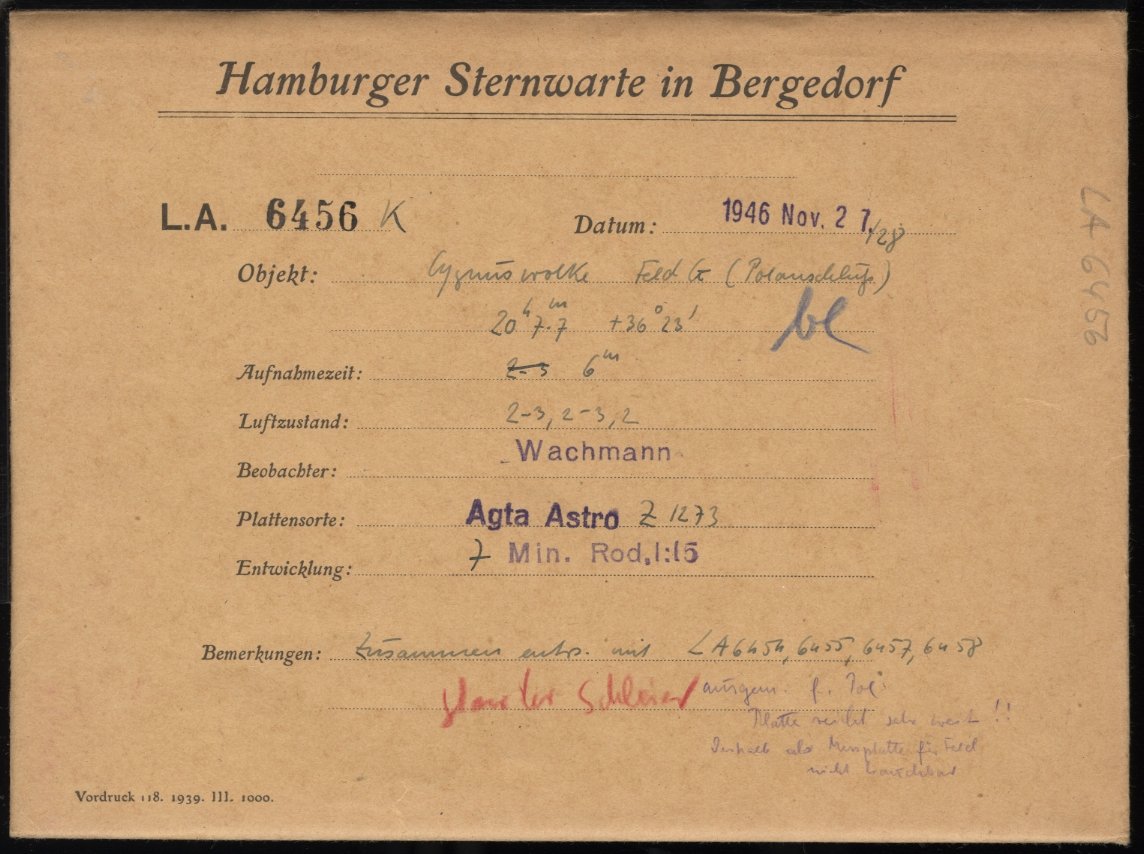 Hamburger Sternwarte in Bergedorf
L.A. 6456 K
Datum: 1946 Nov. 27./28
Objekt: Cygnuswolke Feld G (Polanschluß)
20h 7m.7 +36° 23'
bl
Aufnahmezeit: 2-3 6m
Luftzustand: 2-3, 2-3, 2
Beobachter: Wachmann
Plattensorte: Agfa Astro Z 1273
Entwicklung: 7 Min. Rod. 1:15
Bemerkungen: Zusammen entw. mit LA 6454, 6455, 6457, 6458
starker Schleier ausgen. f. Pol
Platte reicht sehr weit!!
Deshalb als Messplatte für Feld
nicht brauchbar
Vordruck 118. 1939. III. 1000.
LA 6456